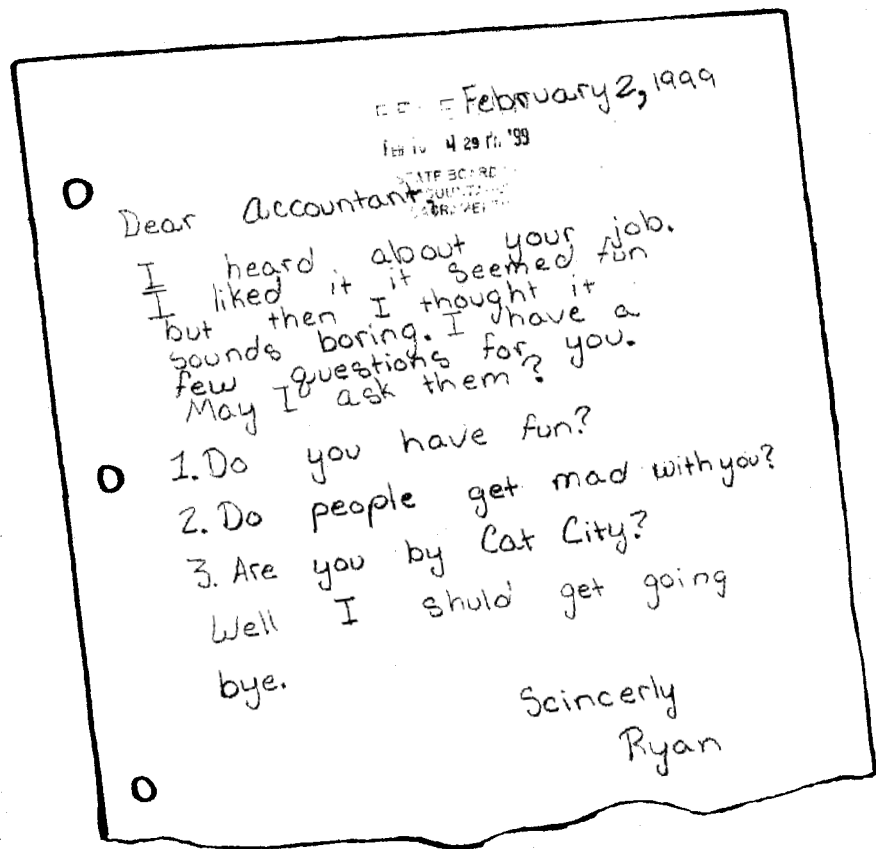 February 2, 1999
4 29 '99
STATE BOARD
Dear Accountant,
I heard about your job.
I liked it it seemed fun
but then I thought it
sounds boring. I have a
few questions for you.
May I ask them?
1. Do you have fun?
2. Do people get mad with you?
3. Are you by Cat City?
Well I shuld get going
bye.
Scincerly
Ryan